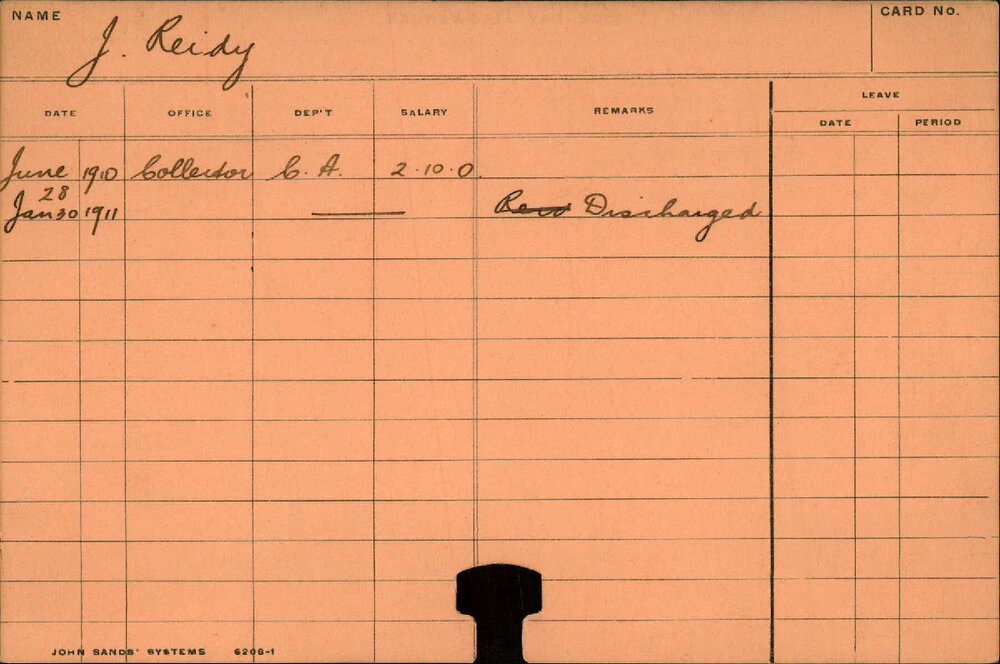 NAME J. Reidy CARD No.
LEAVE
DATE OFFICE DEP'T SALARY REMARKS DATE PERIOD
June 1910 Collector C. A. 2.10.0.
28
Jan 30 1911 Discharged
JOHN SANDS' SYSTEMS 6206-1